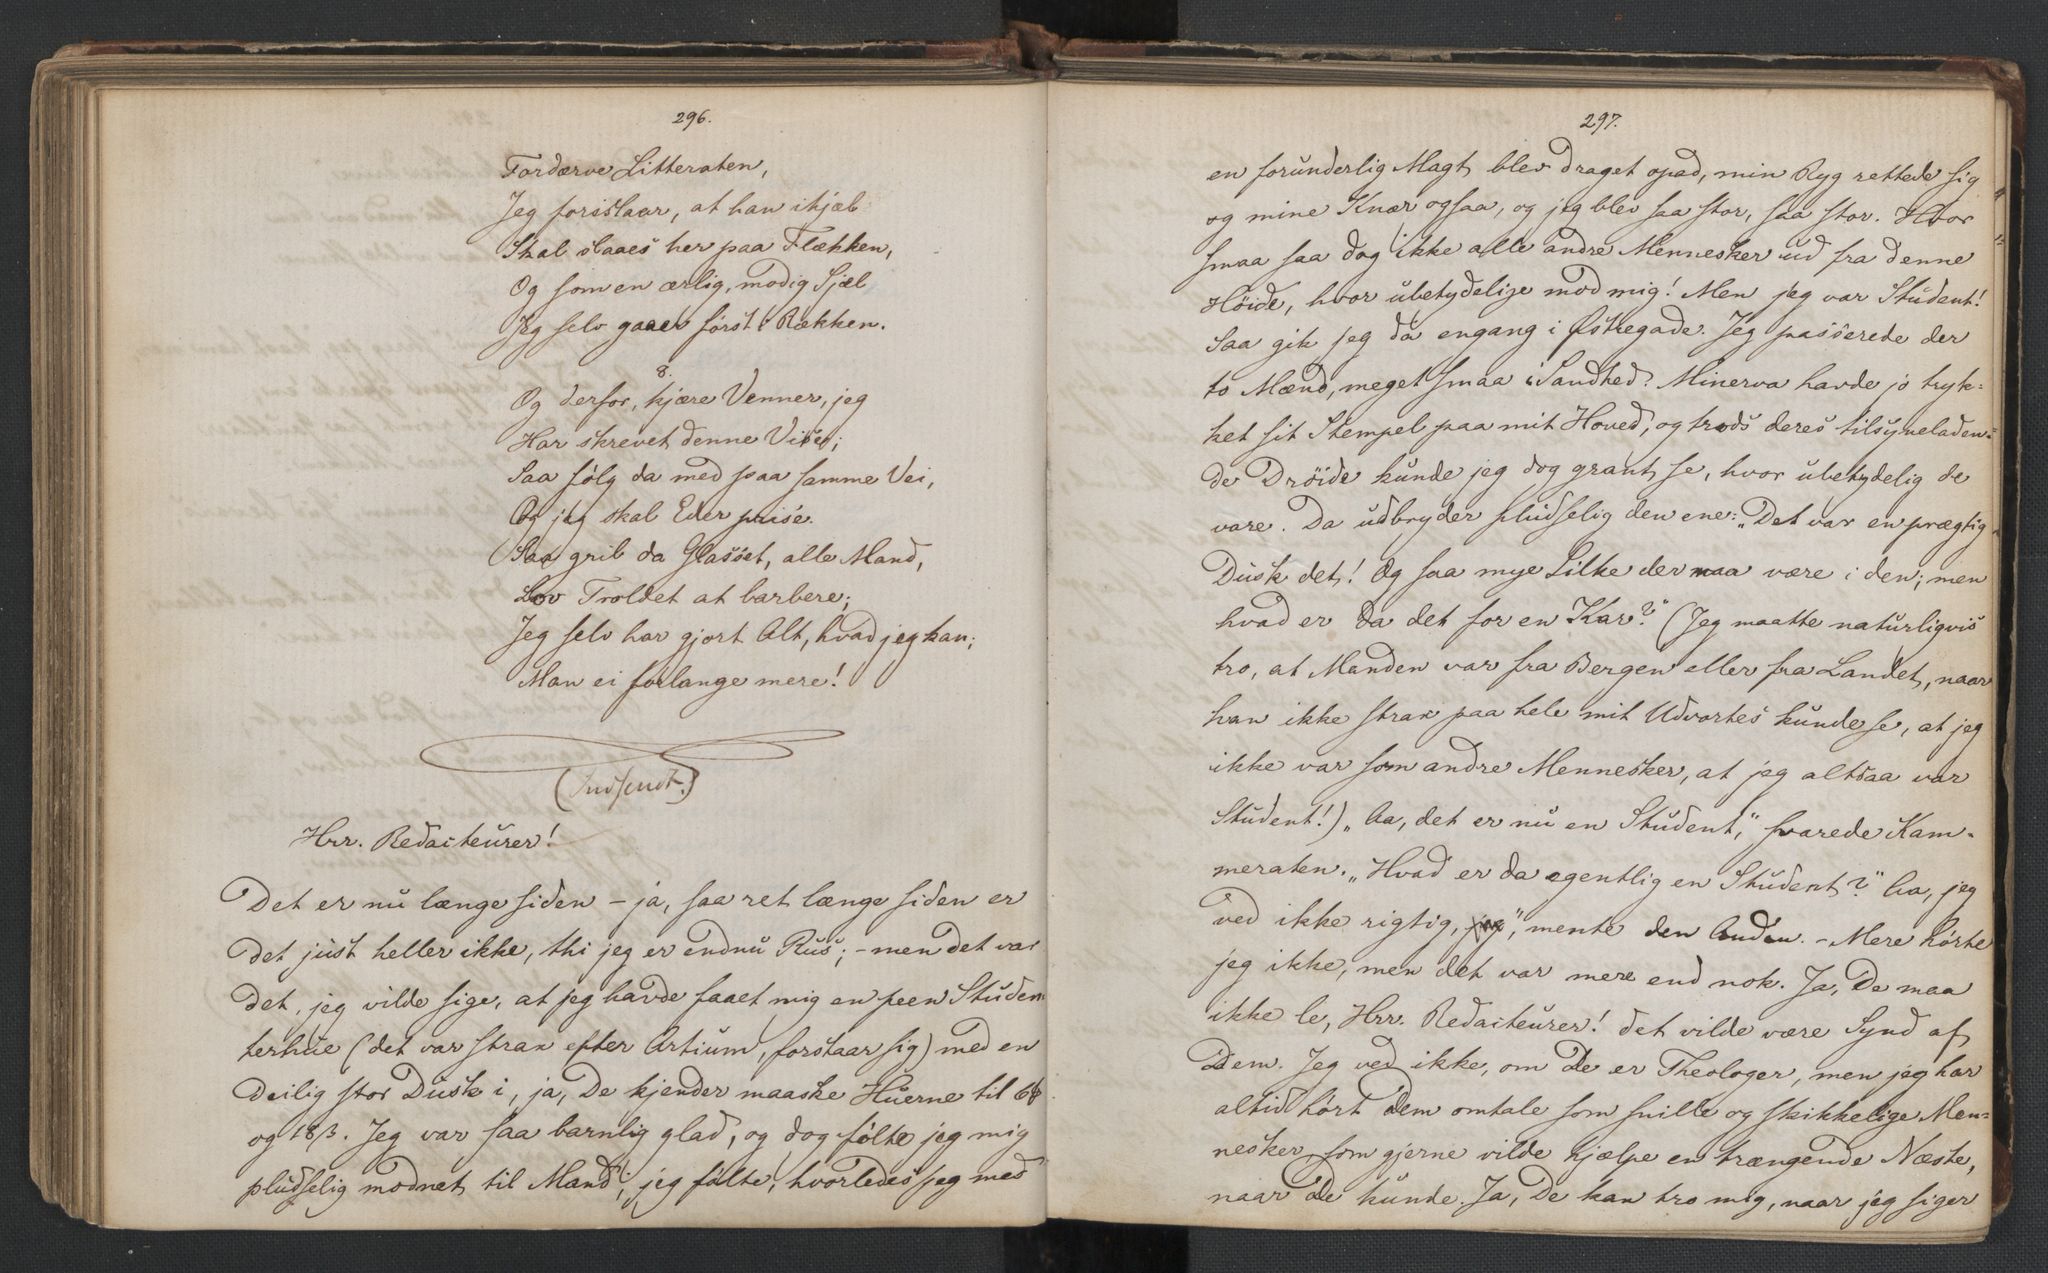 296.
Fordærve Litteraten,
Jeg foreslaar, at han ihjæl
Skal slaaes her paa Flækken,
Og som en ærlig, modig Sjæl
Jeg selv gaaer først i Rækken.
8.
Og derfor, kjære Venner, jeg
Har skrevet denne Vise;
Saa følg da med paa samme Vei,
Og jeg skal Eder prise.
Saa grib da Glasset, alle Mand,
Lov Troldet at barbere;
Jeg selv har gjort Alt, hvad jeg kan;
Man ei forlange mere!
(Indsendt.)
Hrr. Redacteurer!
Det er nu længe siden – ja, saa ret længe siden er
det just heller ikke, thi jeg er endnu Rus; – men det var
det, jeg vilde sige, at jeg havde faaet mig en peen Studen
terhue (det var strax efter Artium, forstaar sig) med en
deilig stor Dusk i, ja, De kjender maaske Huerne til 6
og 18 ß. Jeg var saa barnlig glad, og dog følte jeg mig
pludselig modnet til Mand; jeg følte, hvorledes jeg med
297.
en forunderlig Magt blev draget opad, min Ryg rettede sig
og mine Knær ogsaa, og jeg blev saa stor, saa stor. Hvor
smaa saa dog ikke alle andre Mennesker ud fra denne
Høide, hvor ubetydelige mod mig! Men jeg var Student!
Saa gik jeg da engang i Østregade. Jeg passerede der
to Mænd, meget smaa i Sandhed. Minerva havde jo tryk-
ket sit Stempel paa mit Hoved, og trods deres tilsyneladen-
de Drøide kunde jeg dog grant se, hvor ubetydelig de
vare. Da udbryder pludselig den ene: „Det var en prægtig
Dusk det! Og saa mye Silke der maa være i den; men
hvad er da det for en Kar?" (Jeg maatte naturligvis
tro, at Manden var fra Bergen eller fra Landet, naar
han ikke strax paa hele mit Udvortes kunde se, at jeg
ikke var som andre Mennesker, at jeg altsaa var
Student!) „Aa, det er nu en Student," svarede Kam-
meraten. „Hvad er da egentlig en Student?" Aa, jeg
ved ikke rigtig, jeg", mente den Anden. – Mere hørte
jeg ikke, men det var mere end nok. Ja, De maa
ikke le, Hrr. Redacteurer! det vilde være Synd af
Dem. Jeg ved ikke, om De er Theologer, men jeg har
altid hørt Dem omtale som snille og skikkelige Men-
nesker, som gjerne vilde hjælpe en trængende Næste,
naar De kunde. Ja, De kan tro mig, naar jeg siger